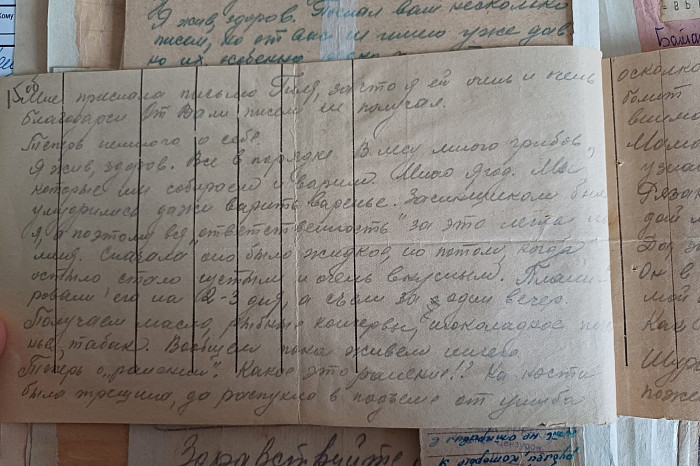 Я жив, здоров. Послал вам несколько
писем, но от вас не имею уже дав
1500
Мне прислала письмо Гиля, за что я ей очень и очень
благодарен. От Вали писем не получал.
Теперь немного о себе.
Я жив, здоров. Все в порядке. В лесу много грибов,
которые мы собираем и варим. Много ягод. Мы
умудрились даже варить варенье. Засильщиком был
я, а поэтому вся "ответственность" за это легла на
меня. Сначала оно было жидков, но потом, когда
остыло стало густым и очень вкусным. Плани-
ровали его на 2-3 дня, а съели за один вечер.
Получаем масло, рыбные консервы, шоколадное
табак. Вообщем пока живем ничего.
Теперь о "ранении". Какое это ранение!? На кости
была трещина, да распухло в подъеме от ушиба
осколко
болит
Мама
узна
дай
Он в
мой
Как
Шур
Здравствуйте